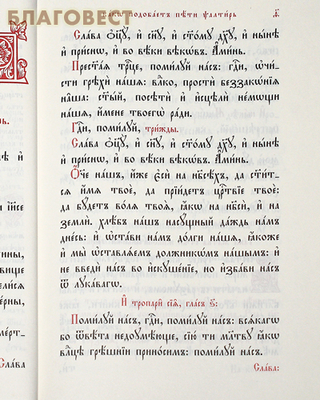 БЛАГОВЕСТ
ка́кѡ подоба́етъ пѣ́ти ѱалти́рь
Сла́ва ѻ҆ц҃ꙋ̀, и҆ сн҃ꙋ, и҆ ст҃о́мꙋ дх҃ꙋ, и҆ ны́нѣ
и҆ при́снѡ, и҆ во вѣ́ки вѣкѡ́въ. А҆ми́нь.
Прест҃а́ѧ трⷪ҇це, поми́лꙋй на́съ: гдⷭ҇и, ѡ҆чи́-
сти грѣхѝ на́шѧ: влⷣко, простѝ беззакѡ́нїѧ
на̑ша: ст҃ы́й, посѣтѝ и҆ и҆сцѣлѝ не́мѡщи
на́шѧ, и҆́мене твоегѡ̀ ра́ди.
Гдⷭ҇и, поми́лꙋй, три́жды.
Сла́ва ѻ҆ц҃ꙋ̀, и҆ сн҃ꙋ, и҆ ст҃о́мꙋ дх҃ꙋ, и҆ ны́нѣ
и҆ при́снѡ, и҆ во вѣ́ки вѣкѡ́въ. А҆ми́нь.
Ѻ҆́ч҃е на́шъ, и҆́же є҆сѝ на нб҃сѣ́хъ, да ст҃и́т-
сѧ и҆́мѧ твоѐ, да прїи́детъ црⷭ҇твїе твоѐ:
да бꙋ́детъ во́лѧ твоѧ̀, ꙗ҆́кѡ на нб҃сѝ, и҆ на
землѝ. хлѣ́бъ на́шъ насꙋ́щный да́ждь на́мъ
дне́сь: и҆ ѡ҆ста́ви на́мъ до́лги на́шѧ, ꙗ҆́коже
и҆ мы̀ ѡ҆ставлѧ́емъ должникѡ́мъ на́шымъ: и҆
не введѝ на́съ во и҆скꙋше́нїе, но и҆зба́ви на́съ
ѿ лꙋка́вагѡ.
И҆ тропарѝ сїѧ̑, гла́съ ѕ҃:
Поми́лꙋй на́съ, гдⷭ҇и, поми́лꙋй на́съ: всѧ́кагѡ
бо ѿвѣ́та недоꙋмѣ́юще, сїю́ ти мл҃твꙋ ꙗ҆́кѡ
влⷣцѣ грѣ́шнїи прино́симъ: поми́лꙋй на́съ.
Сла́ва:
Сла́ва